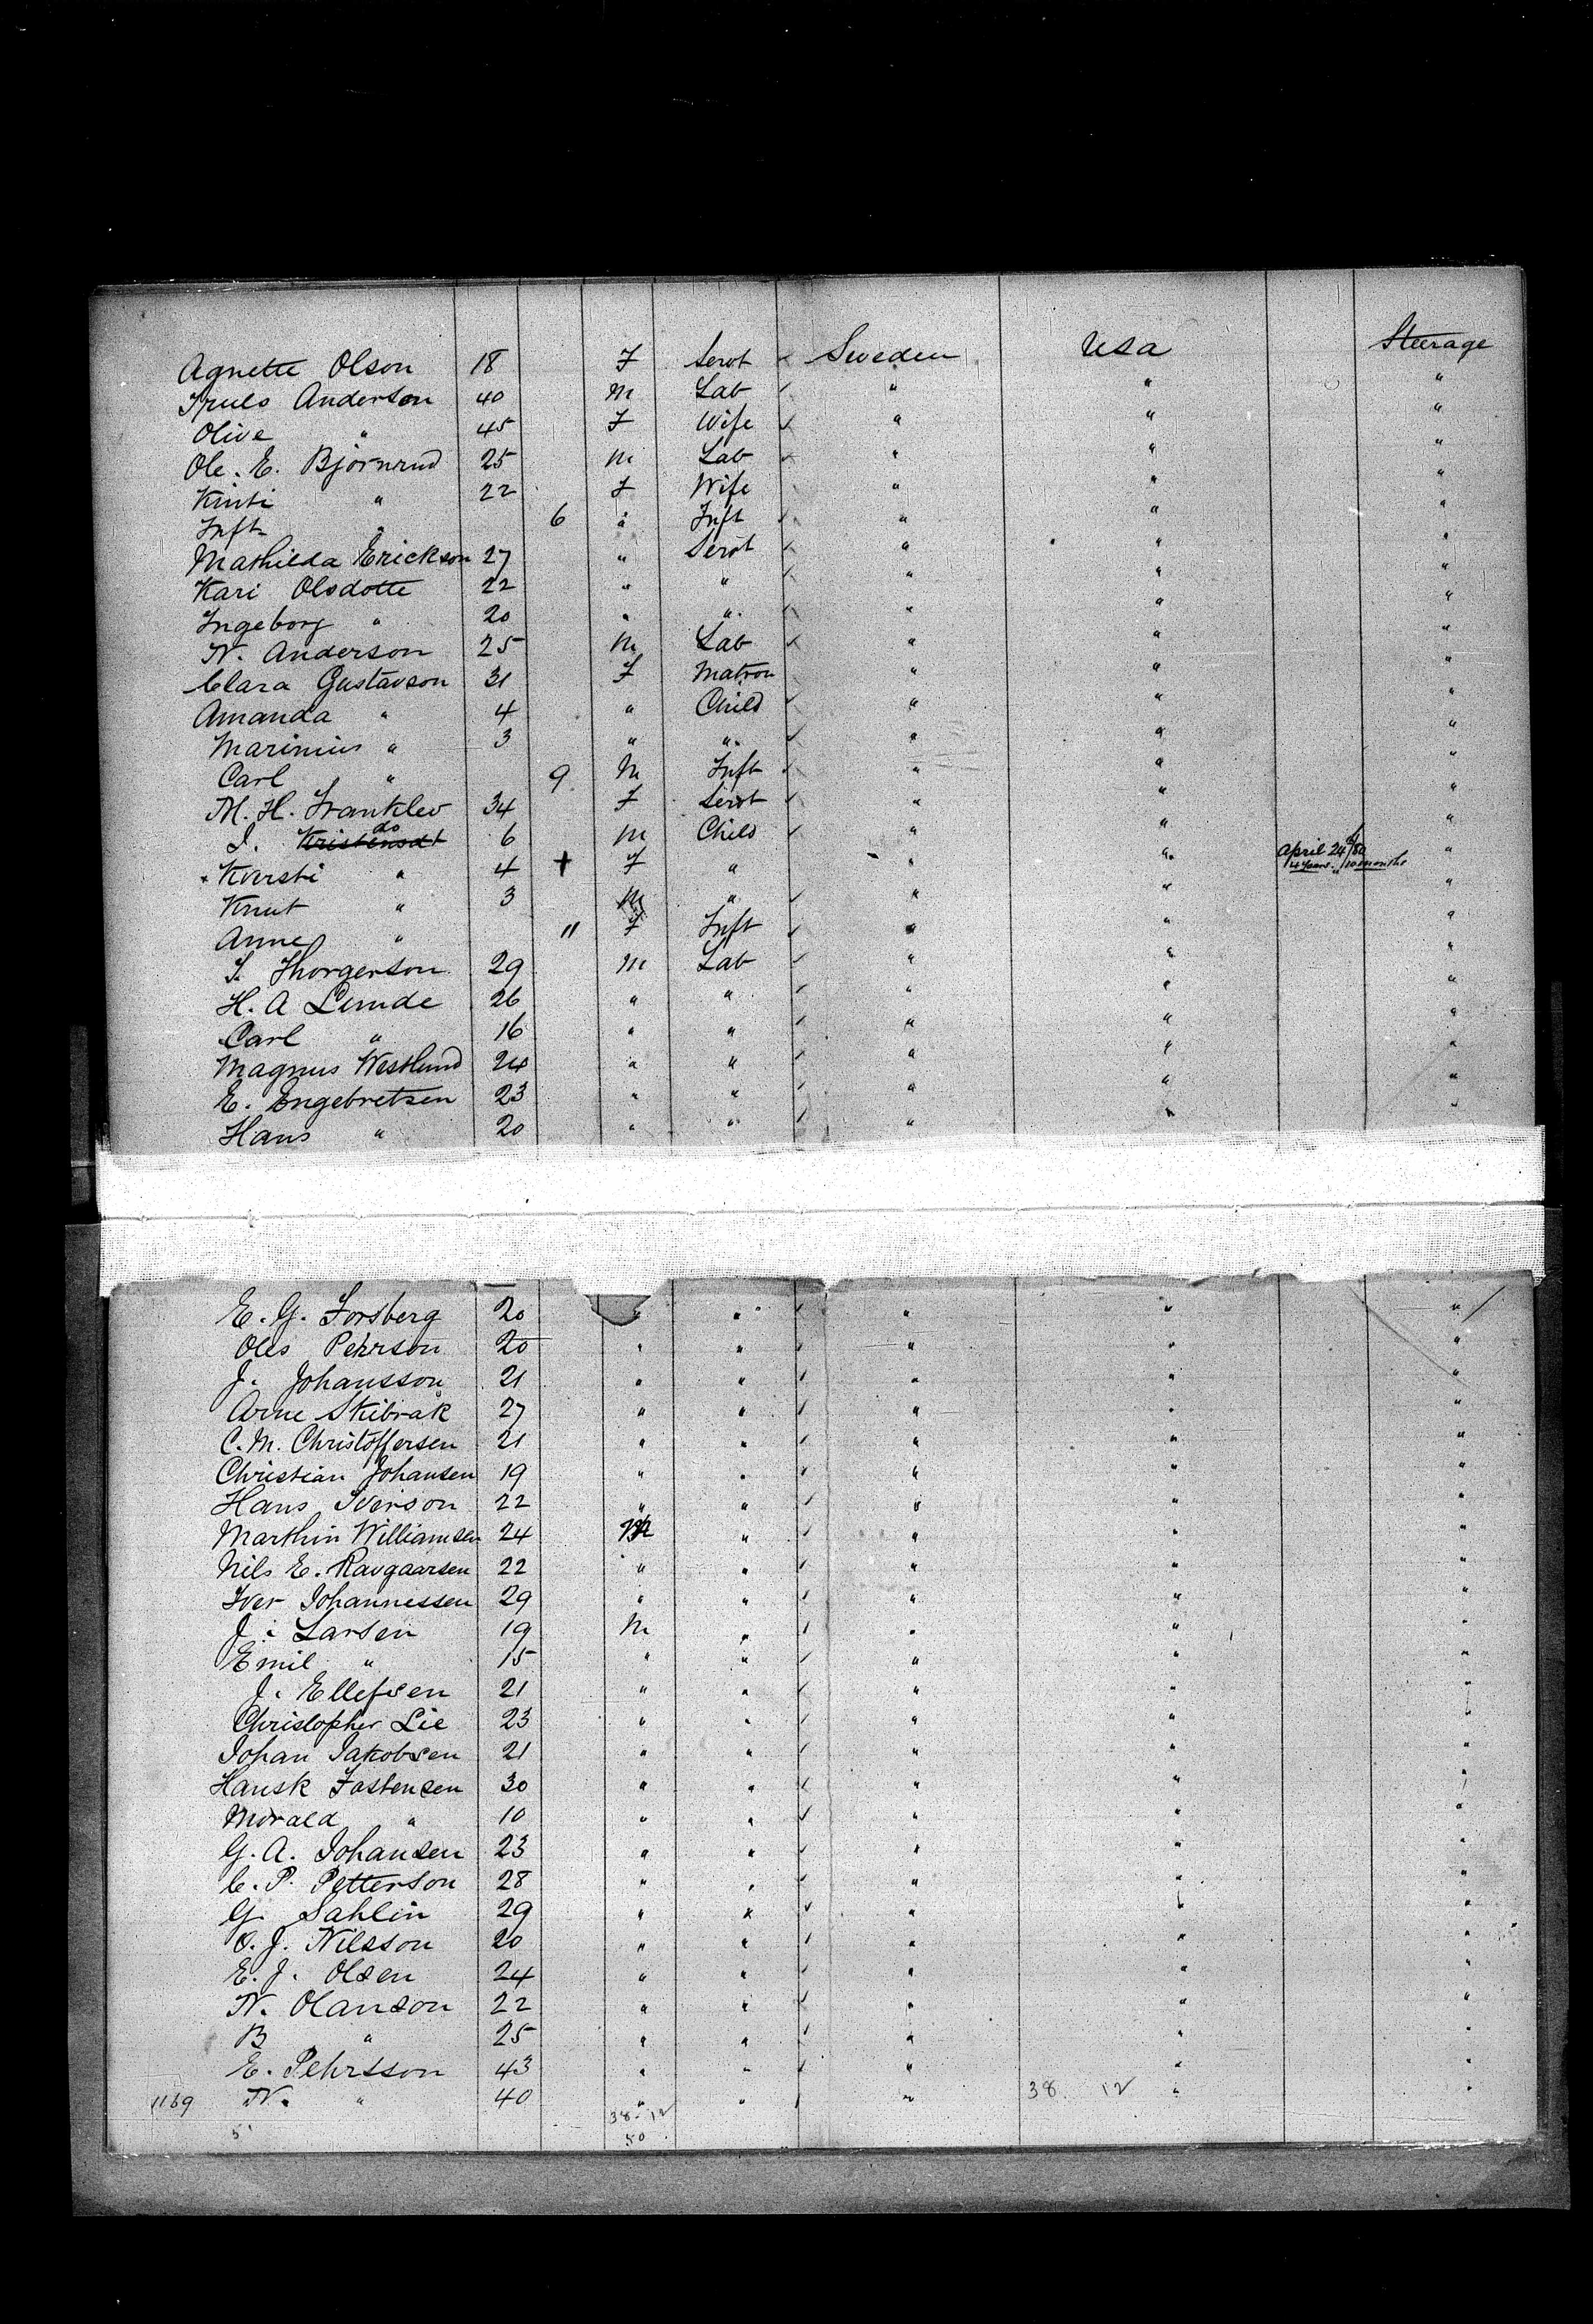 Agnette Olson 18 F Servt Sweden USA Steerage
Truls Anderson 40 M Lab " " "
Olive " 45 F Wife " " "
Ole. E. Björnrud 25 M Lab " " "
Kirsti " 22 F Wife " " "
Inft " 6 " Inft " " "
Mathilda Erickson 27 " Servt " " "
Kari Olsdotte 22 " " " " "
Ingeborg " 20 " " " " "
N. Anderson 25 M Lab " " "
Clara Gustavson 31 F Matron " " "
Amanda " 4 " Child " " "
Marinius " 3 " " " " "
Carl " 9 M Inft " " "
M. H. 34 F Servt " " "
I. Kristensdt do 6 M Child " " "
Kersti " 4 + F " " " April 24/80 "
4 years. 10 months
Knut " 3 M " " " "
Anne " 11 F Inft " " "
T. Thorgerson 29 M Lab " " "
H. A Lunde 26 " " " " "
Carl " 16 " " " " "
Magnus Westlund 24 " " " " "
E. Engebretsen 23 " " " " "
Hans " 20 " " " " "
E. G. Forsberg 20 " " " " "
Oles Pehrson 20 " " " " "
J. Johansson 21 " " " " "
Arne Skibrak 27 " " " " "
C. M. Christoffersen 21 " " " " "
Christian Johansen 19 " " " " "
Hans Iverson 22 " " " " "
Marthin Williamsen 24 M " " " "
Nils E. Ravgaarsen 22 " " " " "
Iver Johannessen 29 " " " " "
J. Larsen 19 M " " " "
Emil " 15 " " " " "
J. Ellefsen 21 " " " " "
Christopher Lie 23 " " " " "
Johan Jakobsen 21 " " " " "
Hansk Fostensen 30 " " " " "
Morald " 10 " " " " "
G. A. Johansen 23 " " " " "
C. P. Petterson 28 " " " " "
G Sahlin 29 " " " " "
O. J. Nilsson 20 " " " " "
E. J. Olsen 24 " " " " "
N. Olanson 22 " " " " "
B " 25 " " " " "
E. Pehrsson 43 " " " " "
1169 N. " 40 " " " 38. 12 " "
5 38-12
50